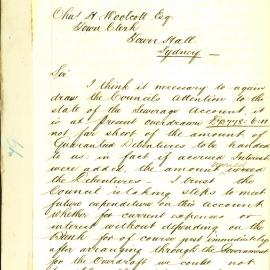 Chas H. Woolcott Esq
Town Clerk
Town Hall
Sydney
Sir
I think it necessary to again
draw the Councils attention to the
state of the Sewerage Account, it
is at present overdrawn
not far short of the amount of
Guaranteed Debentures to be handed
to us; in fact if accrued Interest
were added, the amount
the Debentures - I trust the
Council is taking steps to meet
future expenditure on this account
whether for current expenses or
interest without depending on the
Bank for of course
after arranging through the Government
for the Overdraft we could not